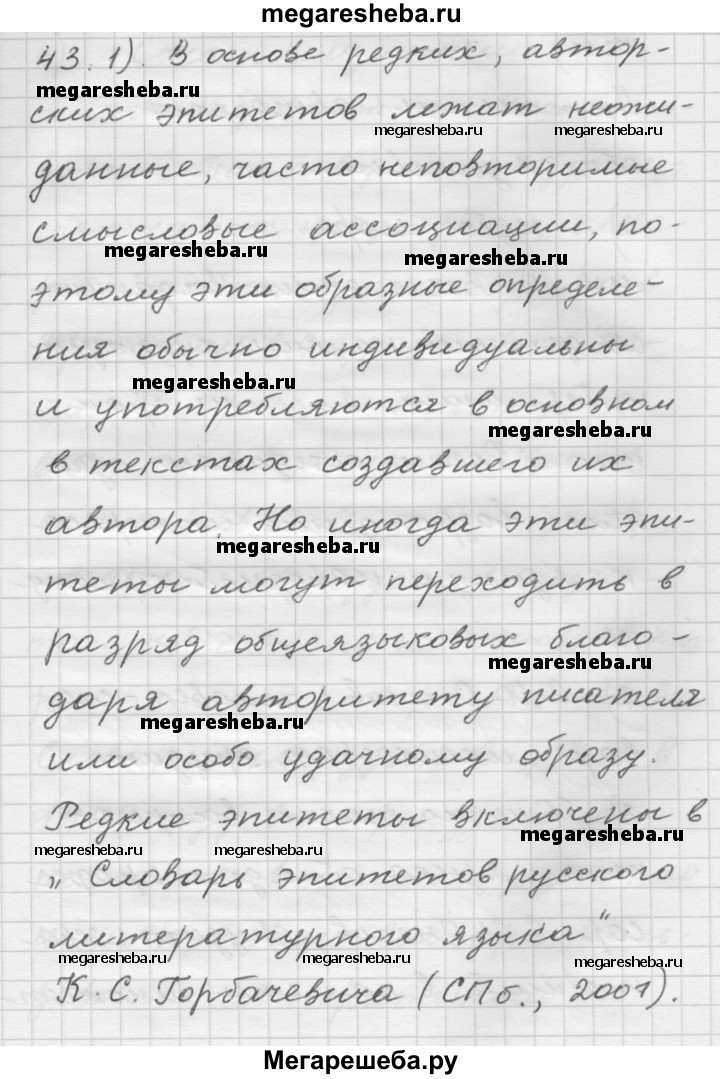 megaresheba.ru
43. 1). В основе редких, автор-
megaresheba.ru
ских эпитетов лежат неожи-
megaresheba.ru megaresheba.ru
данные, часто неповторимые
смысловые ассоциации, по-
megaresheba.ru megaresheba.ru
этому эти образные определе-
ния обычно индивидуальны
megaresheba.ru
и употребляются в основном
megaresheba.ru
в текстах создавшего их
автора. Но иногда эти эпи-
megaresheba.ru
теты могут переходить в
разряд общеязыковых благо-
megaresheba.ru
даря авторитету писателя
megaresheba.ru
или особо удачному образу.
Редкие эпитеты включены в
megaresheba.ru
megaresheba.ru megaresheba.ru
„Словарь эпитетов русского
литературного языка"
megaresheba.ru megaresheba.ru megaresheba.ru
К. С. Горбачевича (СПб., 2001).
Мегарешеба.ру